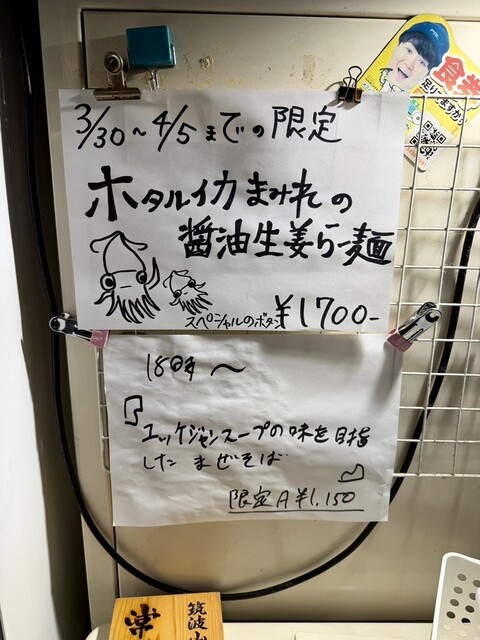 3/30〜4/5までの限定
ホタルイカまみれの
醤油生姜らー麺
スペシャルのボタン ¥1700-
18時〜
『ユッケジャンスープの味を目指
したまぜそば』
限定A ¥1,150
食券
足りてますか?
筑波山
常